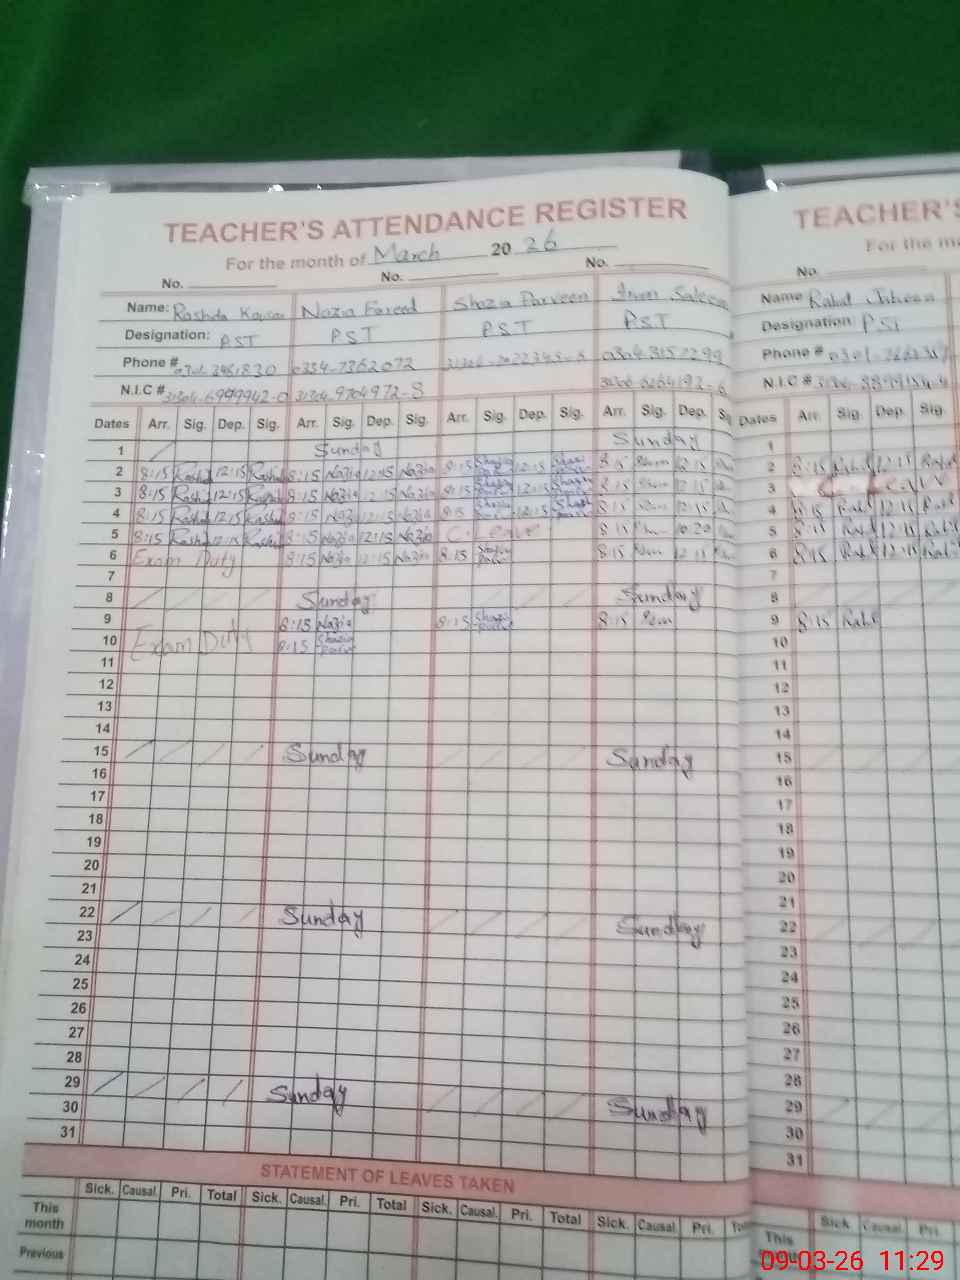 TEACHER'S ATTENDANCE REGISTER
For the month of March 2026
No. No. No.
Name: Rashda Kausar Nazia Fareed Shazia Parveen Irum Saleem
Designation: PST PST PST PST
Phone # 0334-7362072
N.I.C # 31304-6999942-0 31304-9704972-8
Dates Arr. Sig. Dep. Sig. Arr. Sig. Dep. Sig. Arr. Sig. Dep. Sig. Arr. Sig. Dep.
1 Sunday Sunday
2 8:15 12:15 8:15 Nazia 12:15 Nazia 8:15 Shazia 12:15 Shazia 8:15 12:15
3 8:15 12:15 8:15 Nazia 12:15 Nazia 8:15 Shazia 12:15 Shazia 8:15 12:15
4 8:15 12:15 8:15 Nazia 12:15 Nazia 8:15 Shazia 12:15 Shazia 8:15 12:15
5 8:15 12:15 8:15 Nazia 12:15 Nazia C. Leave 8:15 10:20
6 Exam Duty 8:15 Nazia 12:15 Nazia 8:15 Shazia 8:15 12:15
7
8 Sunday Sunday
9 8:15 Nazia 8:15 Shazia 8:15
10 Exam Duty 8:15 Shazia
11
12
13
14
15 Sunday Sunday
16
17
18
19
20
21
22 Sunday Sunday
23
24
25
26
27
28
29 Sunday Sunday
30
31
STATEMENT OF LEAVES TAKEN
Sick. Causal. Pri. Total Sick. Causal. Pri. Total Sick. Causal. Pri. Total Sick. Causal. Pri.
This month
Previous
TEACHER'S
For the
No.
Name Rahat
Designation: PST
Phone #
N.I.C #
Dates Arr. Sig. Dep. Sig.
1
2 8:15 12:15
3
4 8:15 12:15
5 8:15 12:15
6 8:15 12:15
7
8
9 8:15
10
11
12
13
14
15
16
17
18
19
20
21
22
23
24
25
26
27
28
29
30
31
Sick Causal Pri
This
09-03-26 11:29